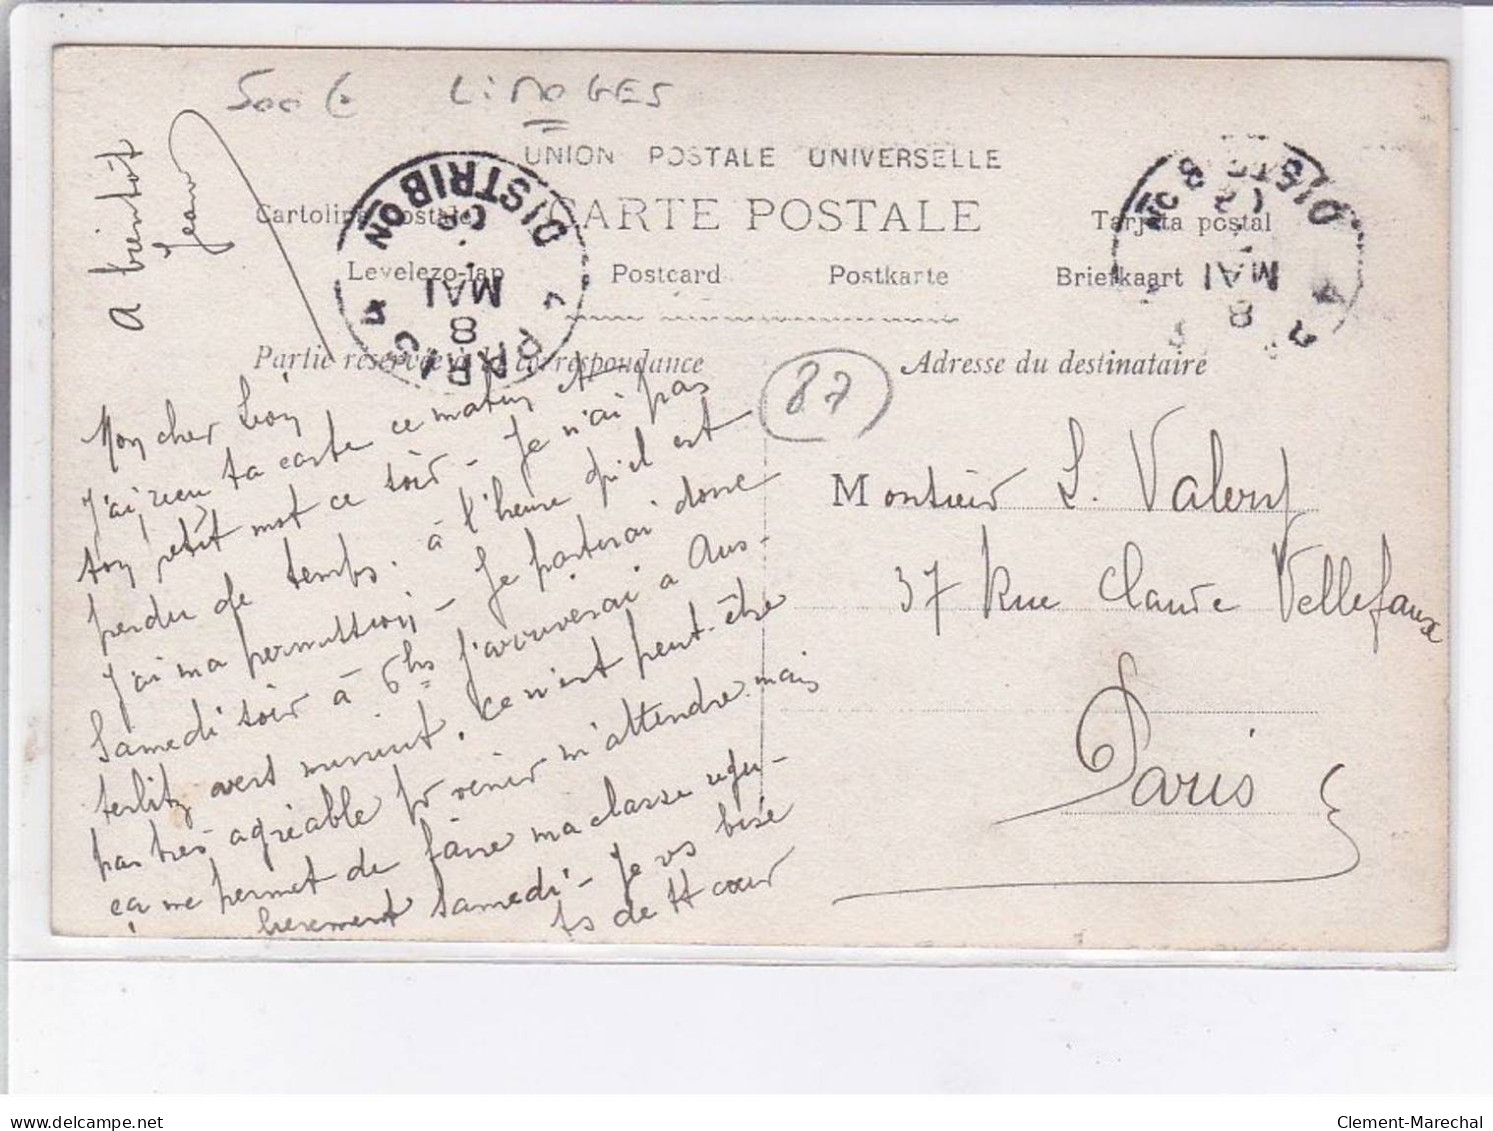 500 € LIMOGES
UNION POSTALE UNIVERSELLE
CARTE POSTALE
Cartolina postale Tarjeta postal
Levelezo-lap Postcard Postkarte Briefkaart
Partie réservée à la correspondance
Adresse du destinataire
PARIS DISTRIBON
8 MAI 09
DIST
8 MAI
87
A bientôt
Jean
Mon cher Léon
J'ai reçu ta carte ce matin et
ton petit mot ce soir - Je n'ai pas
perdu de temps. à l'heure qu'il est
J'ai ma permission - Je partirai donc
Samedi soir à 6hs j'arriverai à Aus-
terlitz vers minuit. ce n'est peut-être
pas très agréable pr venir m'attendre mais
ça me permet de faire ma classe régu-
lièrement samedi - Je vs bise
ts de tt cœur
Monsieur L. Valery
37 Rue Claude Vellefaux
Paris
delcampe.net
Clement-Marechal